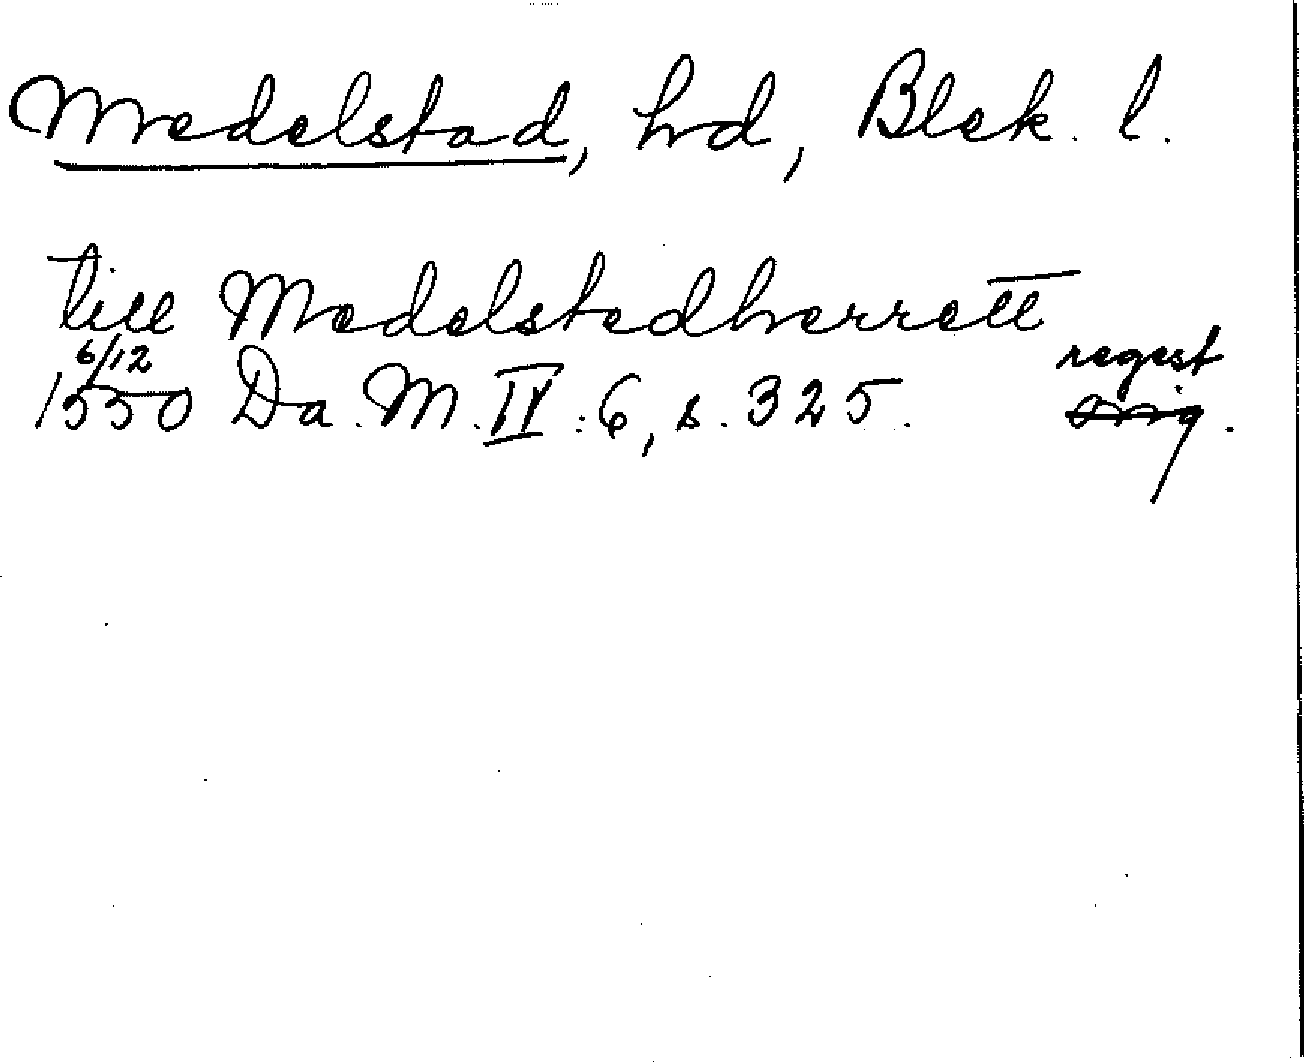 Medelstad, hd, Blek. l.
till Medelstedherrett
6/12 regest
1550 Da. M. IV : 6, s. 325. orig.